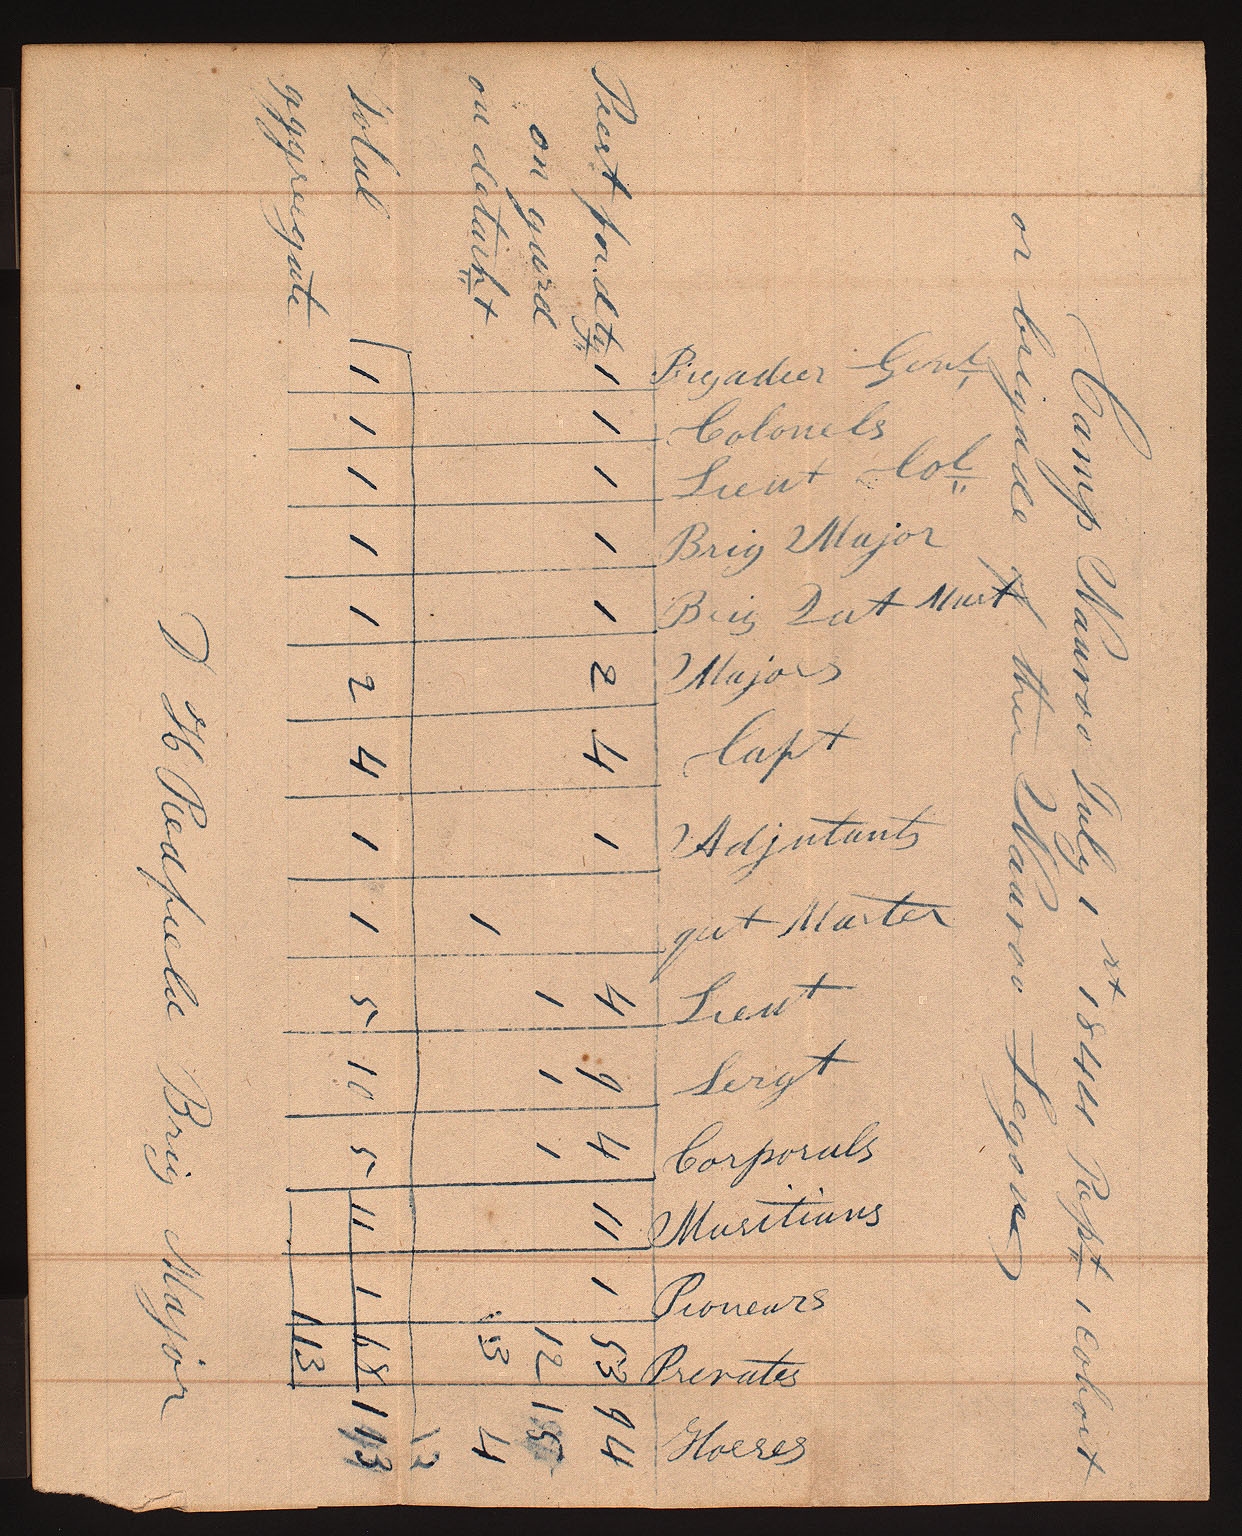 Camp Nauvoo July 1 st 1844 Rept 1 cohort
or brigade of the Nauvoo Legion
Brigadier Genl
Colonels
Lieut Col
Brig Major
Brig Qut Mast
Majors
Capt
Adjutants
qut Master
Lieut
Sergt
Corporals
Musitians
Pioneurs
Privates
Horses
Prest for dty 1 1 1 1 1 2 4 1 4 9 4 11 1 53 94
on guard 1 1 1 12 15
on datacht 1 3 4
13
total 1 1 1 1 1 2 4 1 1 5 10 5 11 1 68 113
aggregate 113
D H Redfield Brig Major